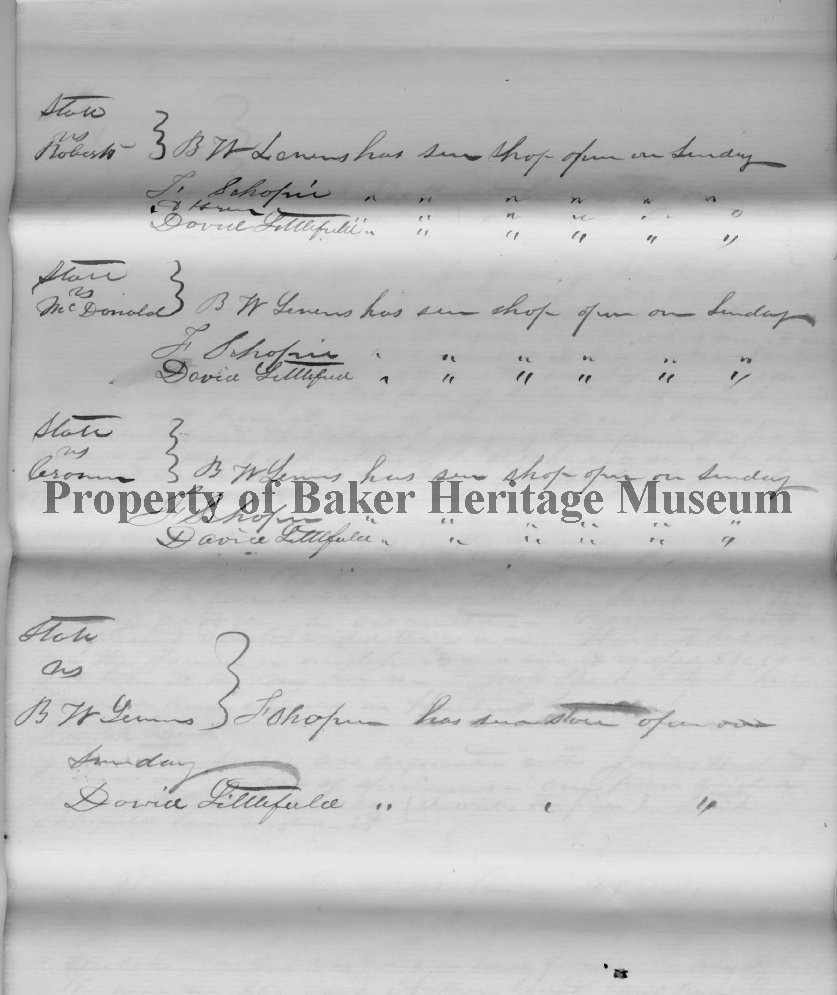 State
vs
Roberts } B W Levens has seen shop open on Sunday
F Schopie " " " " " "
David Littlefield " " " " " "
State
vs
McDonald } B W Levens has seen shop open on Sunday
F Schopie " " " " " "
David Littlefield " " " " " "
State
vs
Cronin } B W Levens has seen shop open on Sunday
Property of Baker Heritage Museum
F Schopie " " " " " "
David Littlefield " " " " " "
State
vs
B W Levens } F Schopie has seen store open on
Sunday
David Littlefield " " "